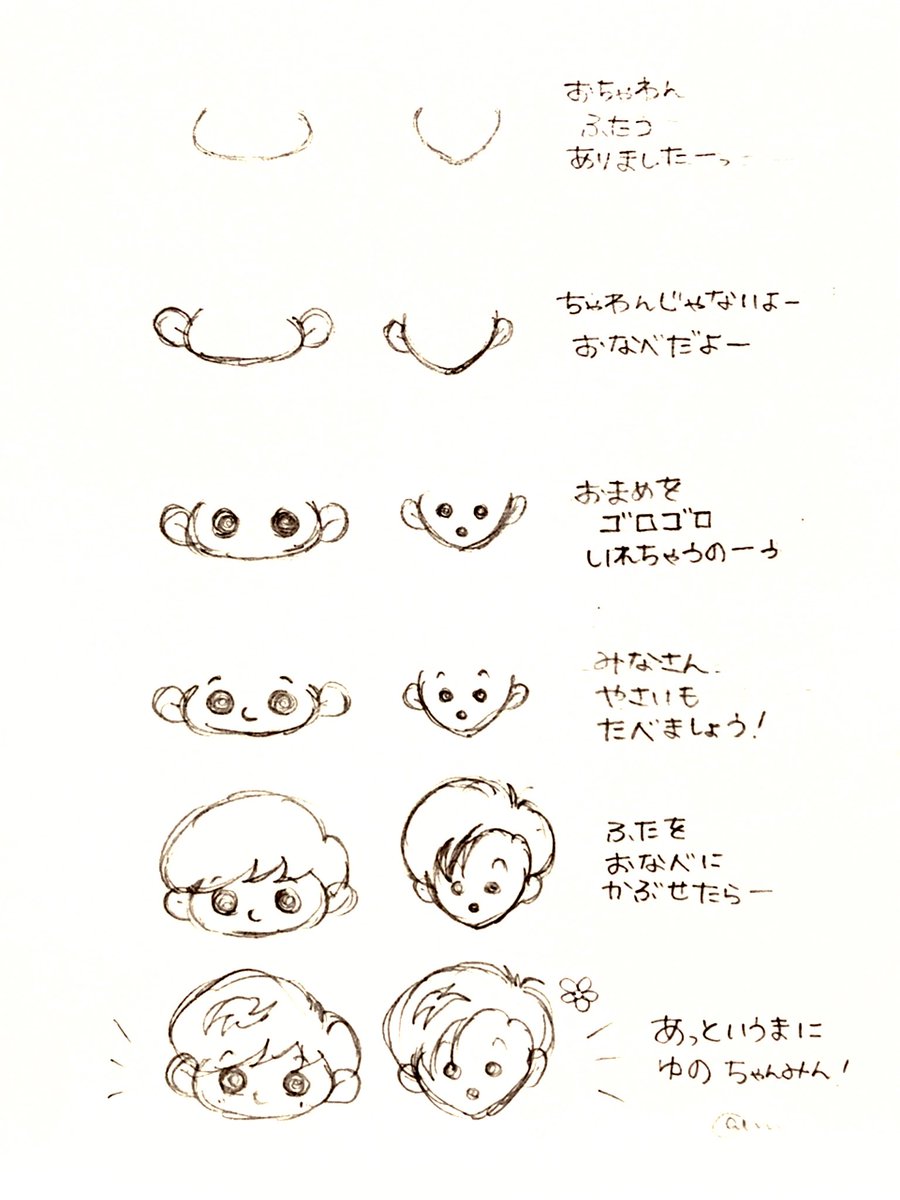 おちゃわん
ふたつ
ありましたーっ
ちゃわんじゃないよー
おなべだよー
おまめを
ゴロゴロ
いれちゃうのーぅ
みなさん
やさいも
たべましょう!
ふたを
おなべに
かぶせたらー
あっというまに
ゆのちゃんみん!